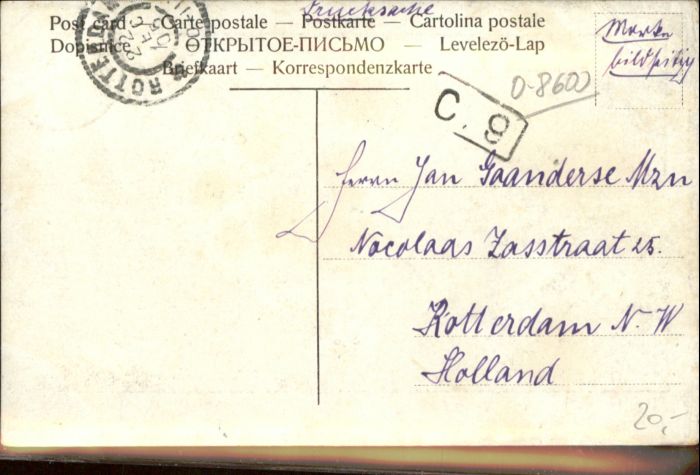 Drucksache
Post card — Carte postale — Postkarte — Cartolina postale
Dopisnice — ОТКРЫТОЕ-ПИСЬМО — Levelezö-Lap
Briefkaart — Korrespondenzkarte
ROTTERDAM
Marke
bildseitig
0-8600
C. 9
Herrn Jan Gaanderse Mzn
Nocolaas Zasstraat 25.
Rotterdam N. W
Holland
20,-